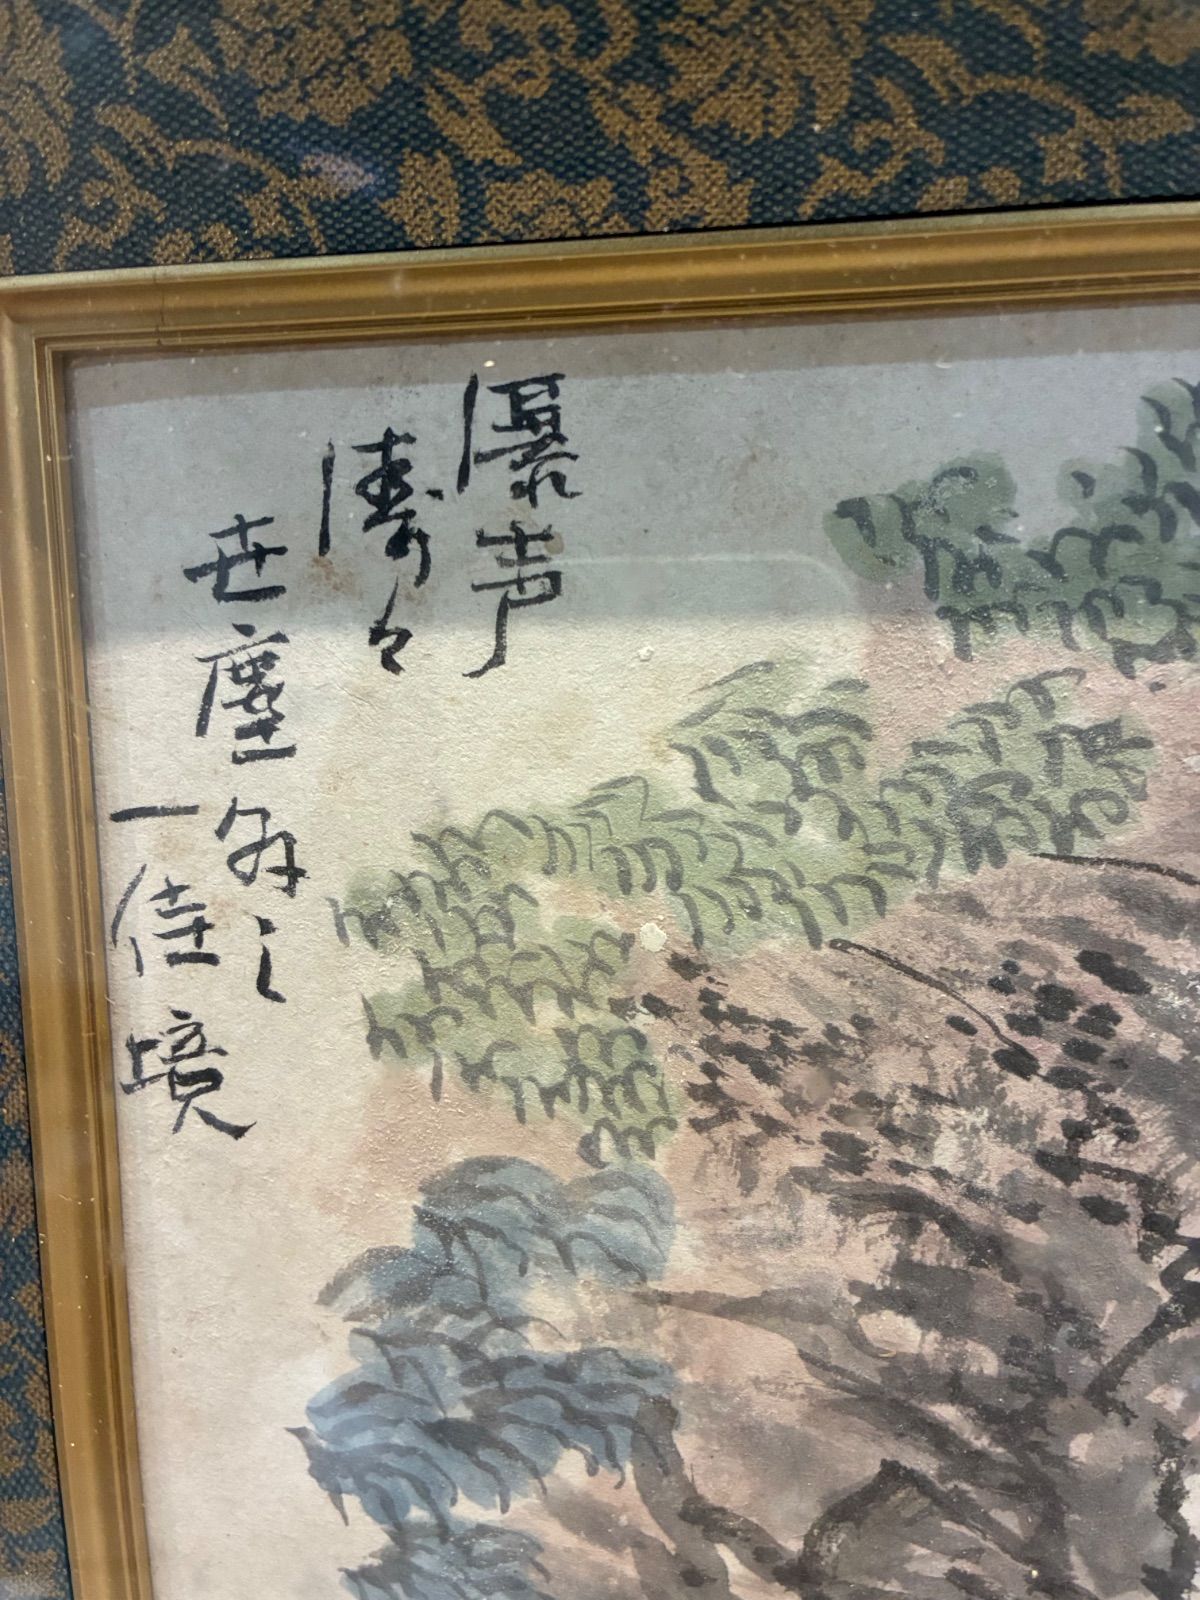 瀑声
濤々
世塵外之
一佳境